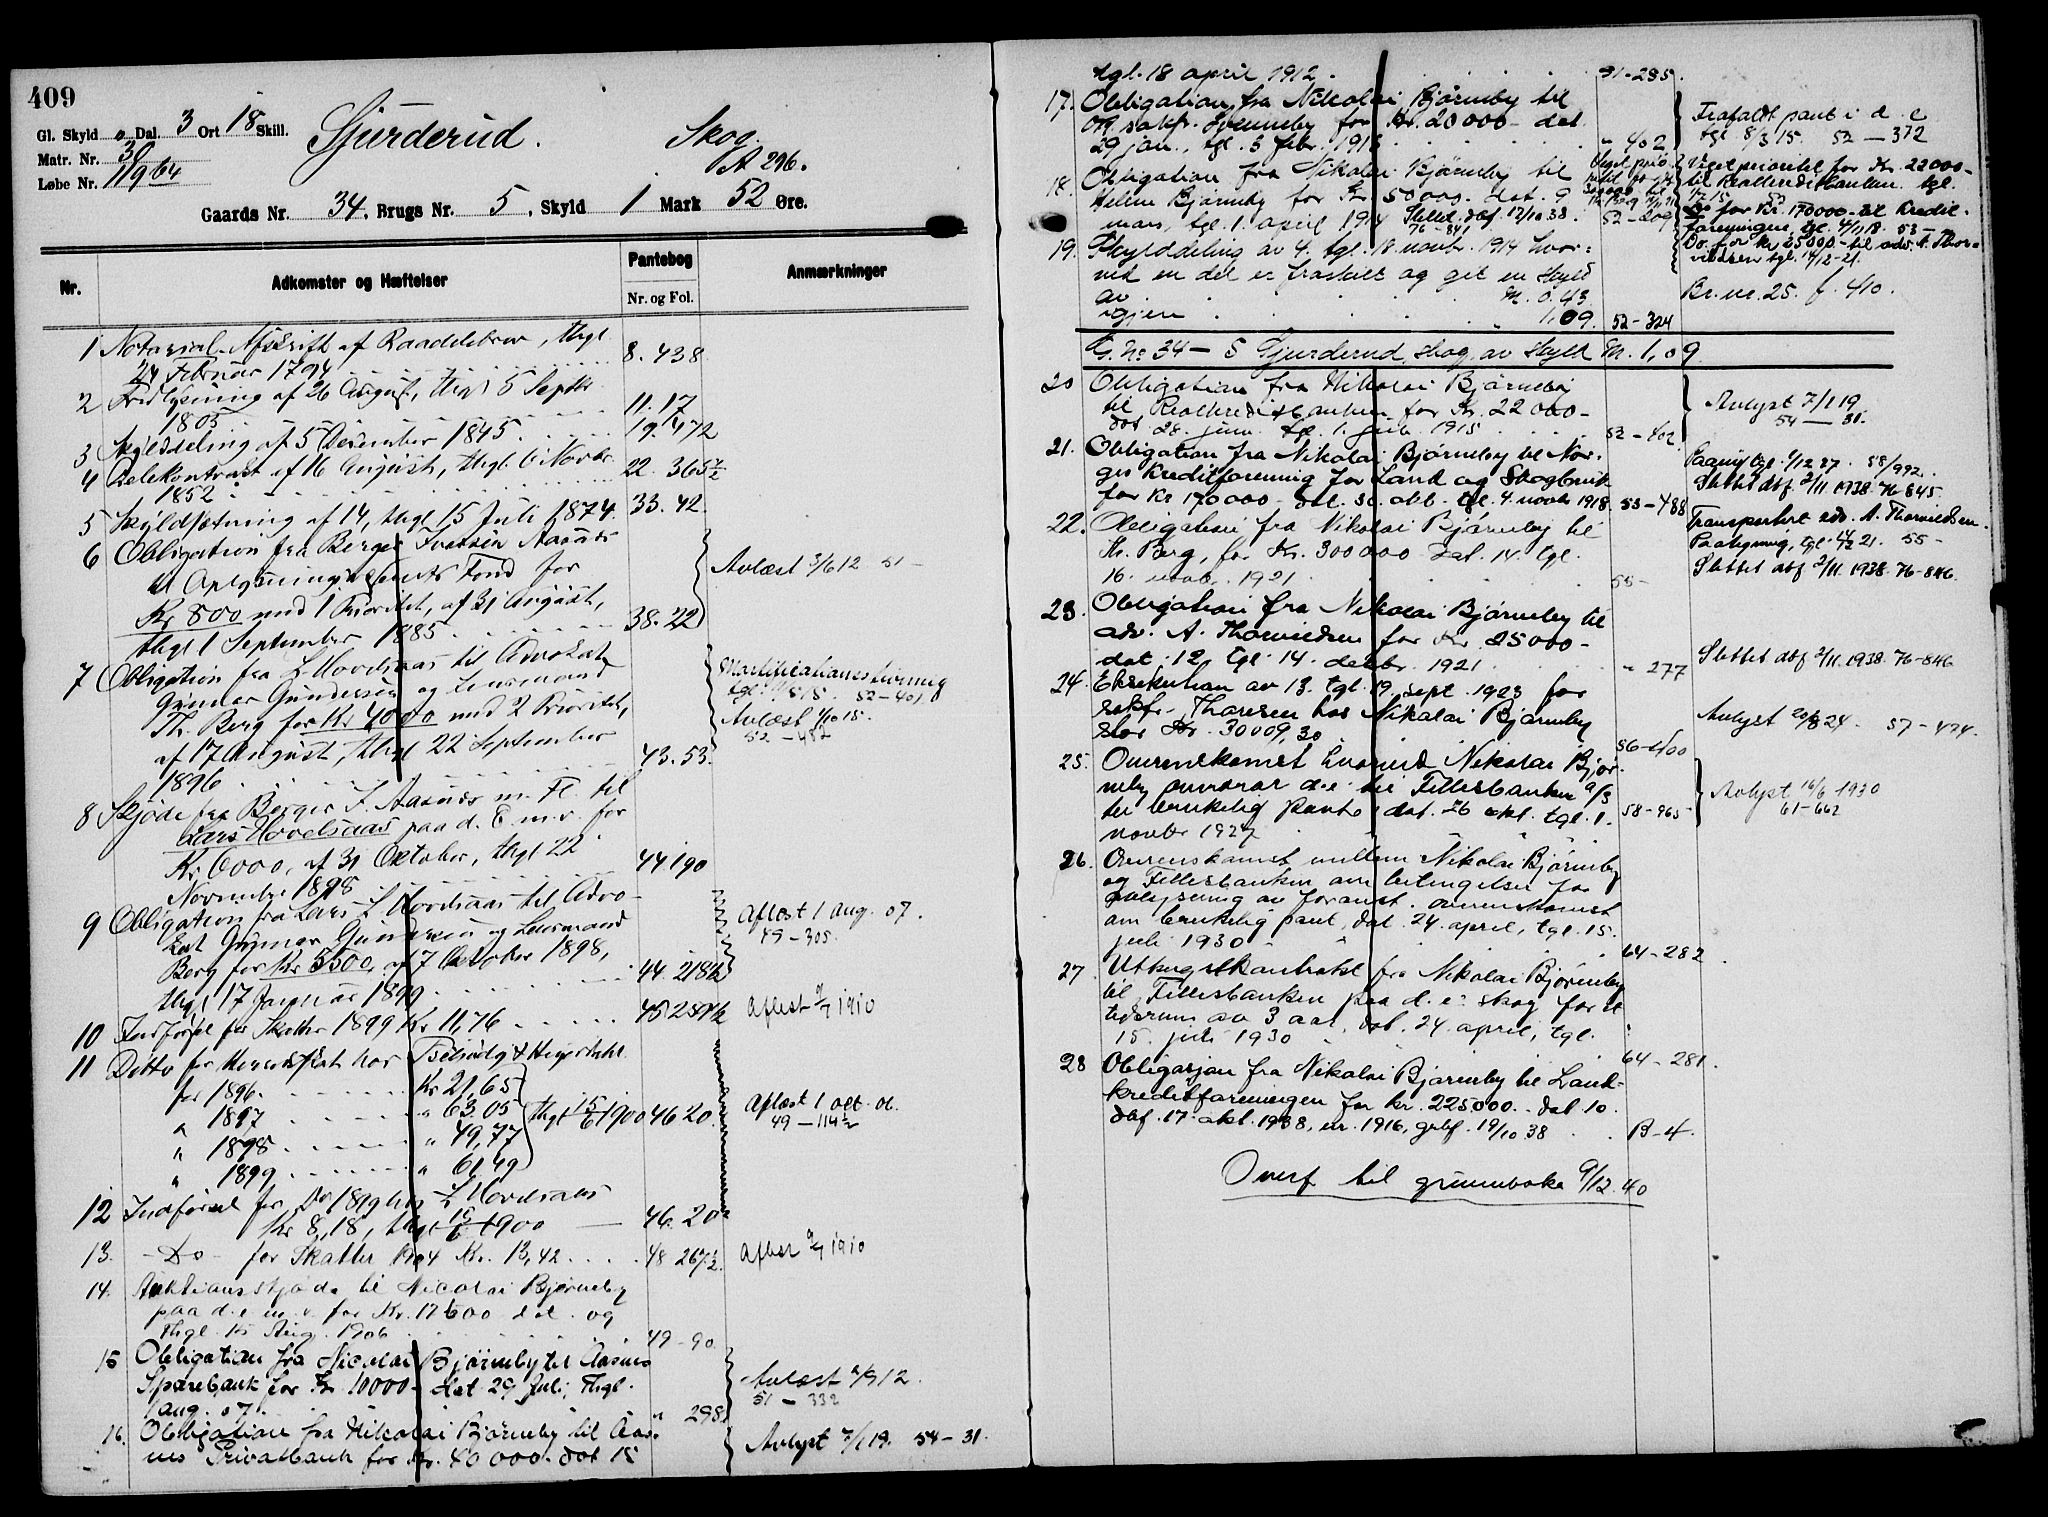 409
Gl. Skyld 0 Dal. 3 Ort 18 Skill.
Matr. Nr. 30
Løbe Nr. 119 64
Gjurderud.
Skog
A 296.
Gaards Nr. 34, Brugs Nr. 5, Skyld 1 Mark 52 Øre.
Nr.
Adkomster og Hæftelser
Pantebog
Nr. og Fol.
Anmærkninger
1 Notarial-Afskrift af Raaddelebrev, thgl
24 Februar 1794 8. 438
2 Fredlysning af 26 August, thgl 5 Septbr
1805 11. 17
3 Skylddeling af 5 December 1845 19. 472
4 Delekontrakt af 16 August, thgl. 6 Novbr
1852 22. 365 1/2
5 Skyldsætning af 14, thgl 15 Juli 1874. 33. 42.
6 Obligation fra Berger Aasnæs
til Oplysningsvæsenets Fond for
Kr 800 med 1 Prioritet, af 31 August,
thgl 1 September 1885. 38. 22
Avlæst 3/6 12 51 -
7 Obligation fra L Hovelsaas til Advokat
Gunnar Gundersen og Lensmand
Th. Berg for Kr 4000 med 2 Prioritet,
af 17 August, thgl 22 September
1896 43. 53.
Mortificationsstevning
52 - 401
Avlæst 4/10 15.
52 - 487
8 Skjøde fra Berger F. Aasnæs m. Fl. til
Lars Hovelsaas paa d. E. m. v. for
Kr. 6000, af 31 Oktober, thgl 22
November 1898 44 190
9 Obligation fra Lars L Hovelsaas til Advo-
kat Gunnar Gundersen og Lensmand
Berg for Kr 5500, af 7 Oktober 1898,
thgl 17 Januar 1899 44. 218 1/2
Aflæst 1 aug. 07.
49 - 305.
10 Indførsel for Skatter 1899 Kr 11,76
Aflæst 9/7 1910
11 Ditto for Herredsskat hos
for 1896 Kr 21,65
" 1897 " 63.05 thgl 15/6 1900 46 20.
" 1898 " 49,77
" 1899 " 61,49
Aflæst 1 oct. 06.
49 - 114 1/2
12 Indførsel for Do 1899 hos L Hovelsaas
Kr 8,18, thgl 15/6 1900 46. 20
13. - Do - for Skatter 1904 Kr. 13,42 48 267 1/2
Aflæst 9/7 1910
14. Auktionsskjøde til Nicolai Bjørneby
paa d. e. m. v. for Kr. 17600 dat. og
thgl. 15 Aug. 1906 49 - 90.
15 Obligation fra Nicolai Bjørneby til Aasnes
Sparebank for Kr 10000 - dat 29 Juli, thgl.
1 aug. 07. " 298.
Avlæst 9/12.
51 - 332
16. Obligation fra Nikolai Bjørneby til Aas-
nes Privatbank for Kr. 40 000 - dat 15
Avlyst 7/1 19. 54 - 31.
tgl. 18 april 1912. 51 - 285.
17. Obligation fra Nikolai Bjørneby til
o.r.sakf. Svenneby for Kr. 20000 - dat
29 jan., tgl. 3 febr. 1913 " 402
Frafaldt pant i d. e
tgl 8/3 15. 52 - 372
18. Obligation fra Nikolai Bjørneby til
Helene Bjørneby for Kr 50 000. dat. 9
mars, tgl. 1. april 1914 Slettet. dbf. 17/10 38. 52 - 209
76 - 841
Veget prioritet for Kr. 22000 -
til Realkreditbanken tgl.
Do for Kr. 170000 - til Kredit-
foreningen, tgl. 4/11 18. 53 -
Do. for Kr 25000 - til adv. A. Thor-
vildsen tgl. 14/12 - 21.
19. Skylddeling av 4. tgl. 18. novbr. 1914 hvor-
ved en del er fraskilt og git en Skyld
av M. 0.43
igjen " 1,09. 52 - 324
Br. nr. 25. f. 410.
G. No 34 - 5 Gjurderud, skog, av Skyld M. 1,09.
20 Obligation fra Nikolai Bjørneby
til Realkreditbanken for Kr. 22 000 -
dat 28. juni. tgl. 1. juli. 1915 52 - 402
Avlyst 7/1 19
54 - 31.
21. Obligation fra Nikolai Bjørneby til Nor-
ges Kreditforening for Land og Skogbruk
for Kr 170 000 - dat. 30. okt. tgl. 4. novbr 1918. 53 - 488
58/992.
Slettet dbf 2/11 1938. 76 - 845.
22. Obligation fra Nikolai Bjørneby til
Th. Berg, for Kr. 300 000 - dat. 14. tgl.
16. novbr. 1921 55 -
Transportert adv. A. Thorvildsen.
Slettet dbf 2/11. 1938. 76 - 846.
23. Obligation fra Nikolai Bjørneby til
adv. A. Thorvildsen for Kr. 25 000 -
dat. 12. tgl. 14. decbr. 1921 " 277
Slettet dbf 2/11. 1938. 76 - 846
24. Eksekution av 13. tgl. 19. sept. 1923 for
sakfr. Thoresen hos Nikolai Bjørneby
stor Kr. 30009,30 56 - 400
Avlyst 20/8 24. 57 - 474.
25. Overenskomst hvorved Nikolai Bjør-
neby overdrar d. e. til Fellesbanken a/s
til brukelig pant, dat. 26 okt. tgl. 1.
novbr 1927 58 - 965
Avlyst 16/6 1930
61 - 662
26. Overenskomst mellem Nikolai Bjørneby
og Fellesbanken om betingelser for
avlysning av foranst. overenskomst
om brukelig pant, dat. 24. april, tgl. 15.
juli 1930 64 - 282.
27. Uthugstkontrakt fra Nikolai Bjørneby
til Fellesbanken paa d. e.s skog for et
tidsrum av 3 aar, dat. 24. april, tgl.
15. juli 1930 64 - 281.
28 Obligasjon fra Nikolai Bjørneby til Land-
kreditforeningen for kr. 225000. - dat 10.
dbf. 17. okt. 1938, nr. 1916, grbf. 19/10 38 B - 4.
Overf til grunnboka 9/12. 40